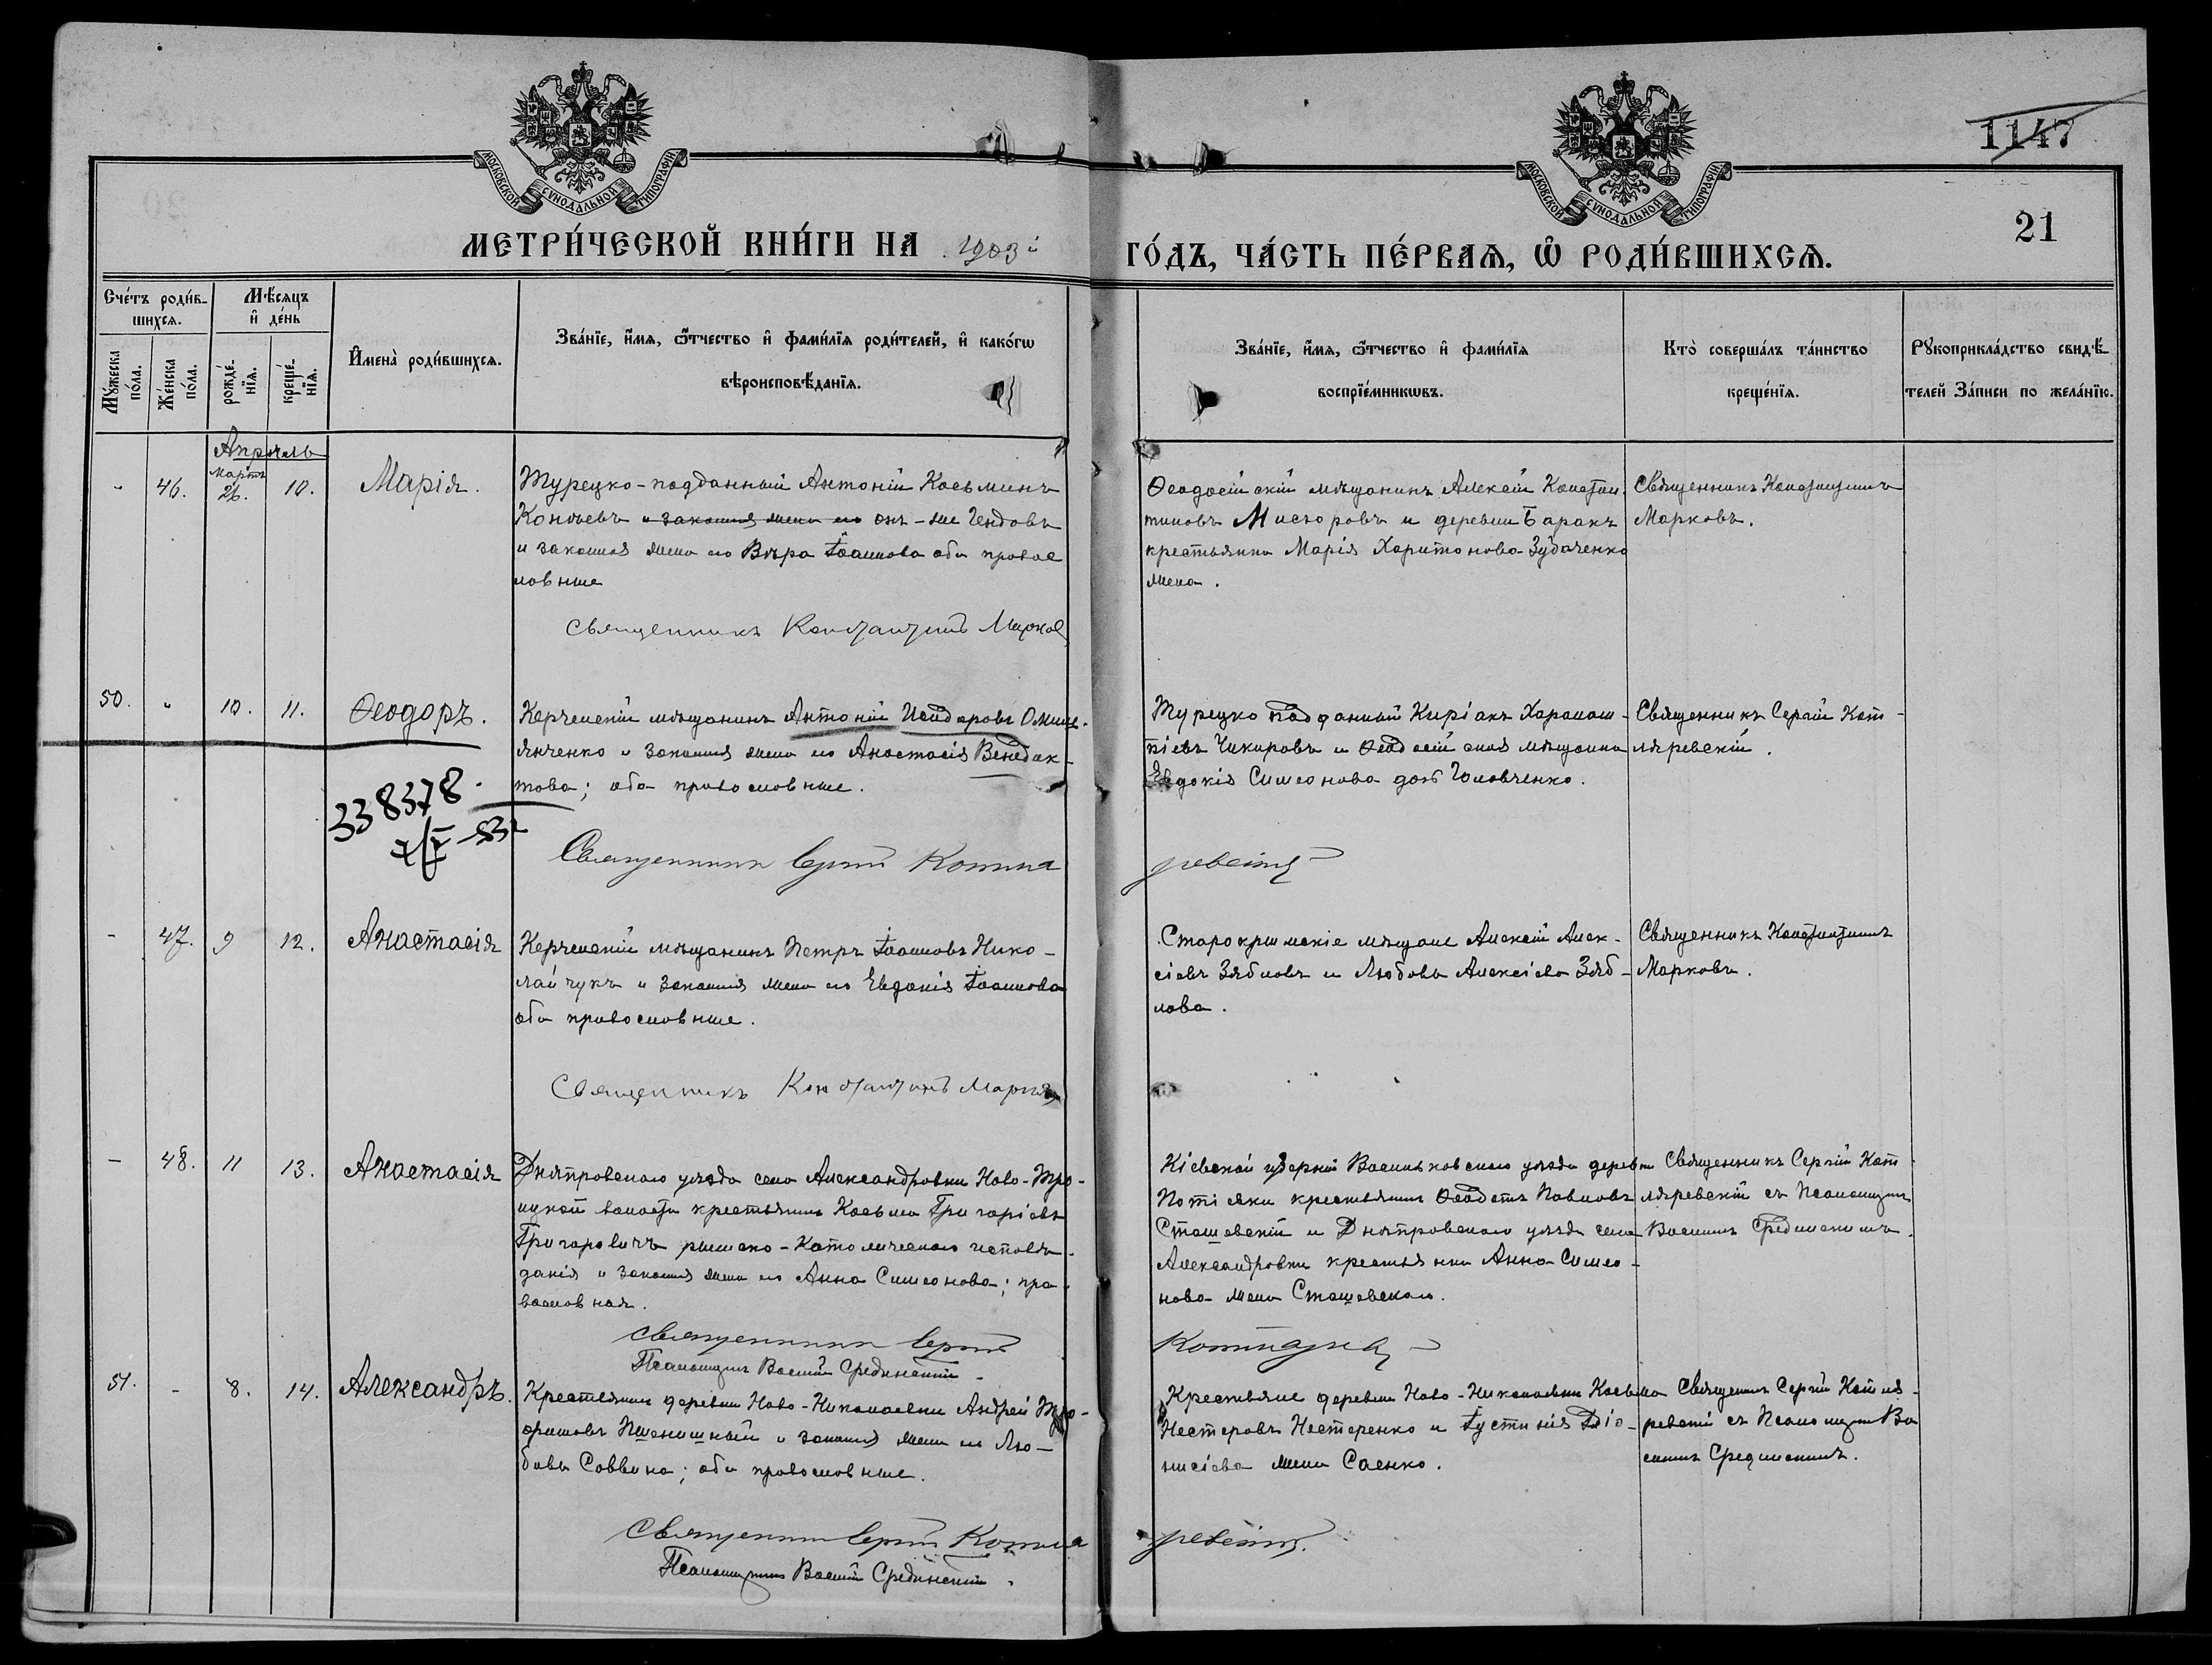 МОСКОВСКОЙ СѴНОДАЛЬНОЙ ТИПОГРАФІИ
МОСКОВСКОЙ СѴНОДАЛЬНОЙ ТИПОГРАФІИ
1147
21
МЕТРИ́ЧЕСКОЙ КНИ́ГИ НА 1903й
ГО́ДЪ, ЧА́СТЬ ПЕ́РВАѦ, Ѡ҆ РОДИ́ВШИХСѦ.
Сче́тъ роди́в-
шихсѧ.
Мѣ́сѧцъ
и҆ де́нь
Мꙋ́жеска
по́ла.
Же́нска
по́ла.
рожде́-
нїѧ.
креще́-
нїѧ.
И҆мена̀ роди́вшихсѧ.
Зва́нїе, и҆́мѧ, ѻ҆́тчество и҆ фами́лїѧ роди́телей, и҆ како́гѡ
вѣроисповѣ́данїѧ.
Зва́нїе, и҆́мѧ, ѻ҆́тчество и҆ фами́лїѧ
воспрїе́мникѡвъ.
Кто̀ соверша́лъ та́инство
креще́нїѧ.
Рꙋкоприкла́дство свидѣ́-
телей За́писи по жела́нїю.
Апрѣль
Мартъ
46. 26. 10. Марія.
Турецко-подданный Антоній Косьминъ
Кончевъ и законная жена его онъ-же Чендовъ
и законная жена его Вѣра Іоаннова оба правос
лавные
Священникъ Константинъ Марков
Ѳеодосійскій мѣщанинъ Алексій Констан-
тиновъ Мисюровъ и деревни Баракъ
крестьянка Марія Харитонова Зубаченко
жена.
Священникъ Константинъ
Марковъ.
50. " 10. 11. Ѳеодоръ.
Керченскій мѣщанинъ Антоній Исидоровъ Омель-
янченко и законная жена его Анастасія Венедик-
това; оба православные.
338378.
Священникъ Сергій Котля
ревскій
Турецко подданный Киріакъ Харалам-
піевъ Чикировъ и Ѳеодосійская мѣщанка
Евдокія Симеонова дочь Головченко.
Священникъ Сергій Кот-
ляревскій.
- 47. 9 12. Анастасія
Керченскій мѣщанинъ Петръ Іоанновъ Нико-
лайчукъ и законная жена его Евдокія Іоаннова
оба православные.
Священникъ Константинъ Марков
Старокрымскіе мѣщане Алексій Алек-
сіевъ Зябловъ и Любовь Алексіева Зяб-
лова.
Священникъ Константинъ
Марковъ.
- 48. 11 13. Анастасія
Днѣпровскаго уѣзда села Александровки Ново-Тро-
ицкой волости крестьянинъ Косьма Григоріевъ
Григоровичъ римско-Католическаго исповѣ-
данія и законная жена его Анна Симеонова; пра-
вославная.
Священникъ Сергій
Котляревск
Псаломщикъ Василій Срединскій
Кіевской губерніи Васильковскаго уѣзда деревни
крестьянинъ Ѳеодотъ Павловъ
Сташевскій и Днѣпровскаго уѣзда села
Александровки крестьянка Анна Симео-
нова жена Сташевскаго.
Священникъ Сергій Кот
ляревскій съ Псаломщик.
Василіемъ Срединскимъ.
51. - 8. 14. Александръ.
Крестьянинъ деревни Ново-Николаевки Андрей Тро-
фимовъ Пшеничный и законная жена его Лю-
бовь Саввина; оба православные.
Священникъ Сергій Котля
ревскій.
Псаломщикъ Василій Срединскій.
Крестьяне деревни Ново-Николаевки Косьма
Несторовъ Нестеренко и Іустинія Діо-
нисіева жена Саенко.
Священникъ Сергій Котля-
ревскій съ Псаломщик. Ва
силіемъ Срединскимъ.